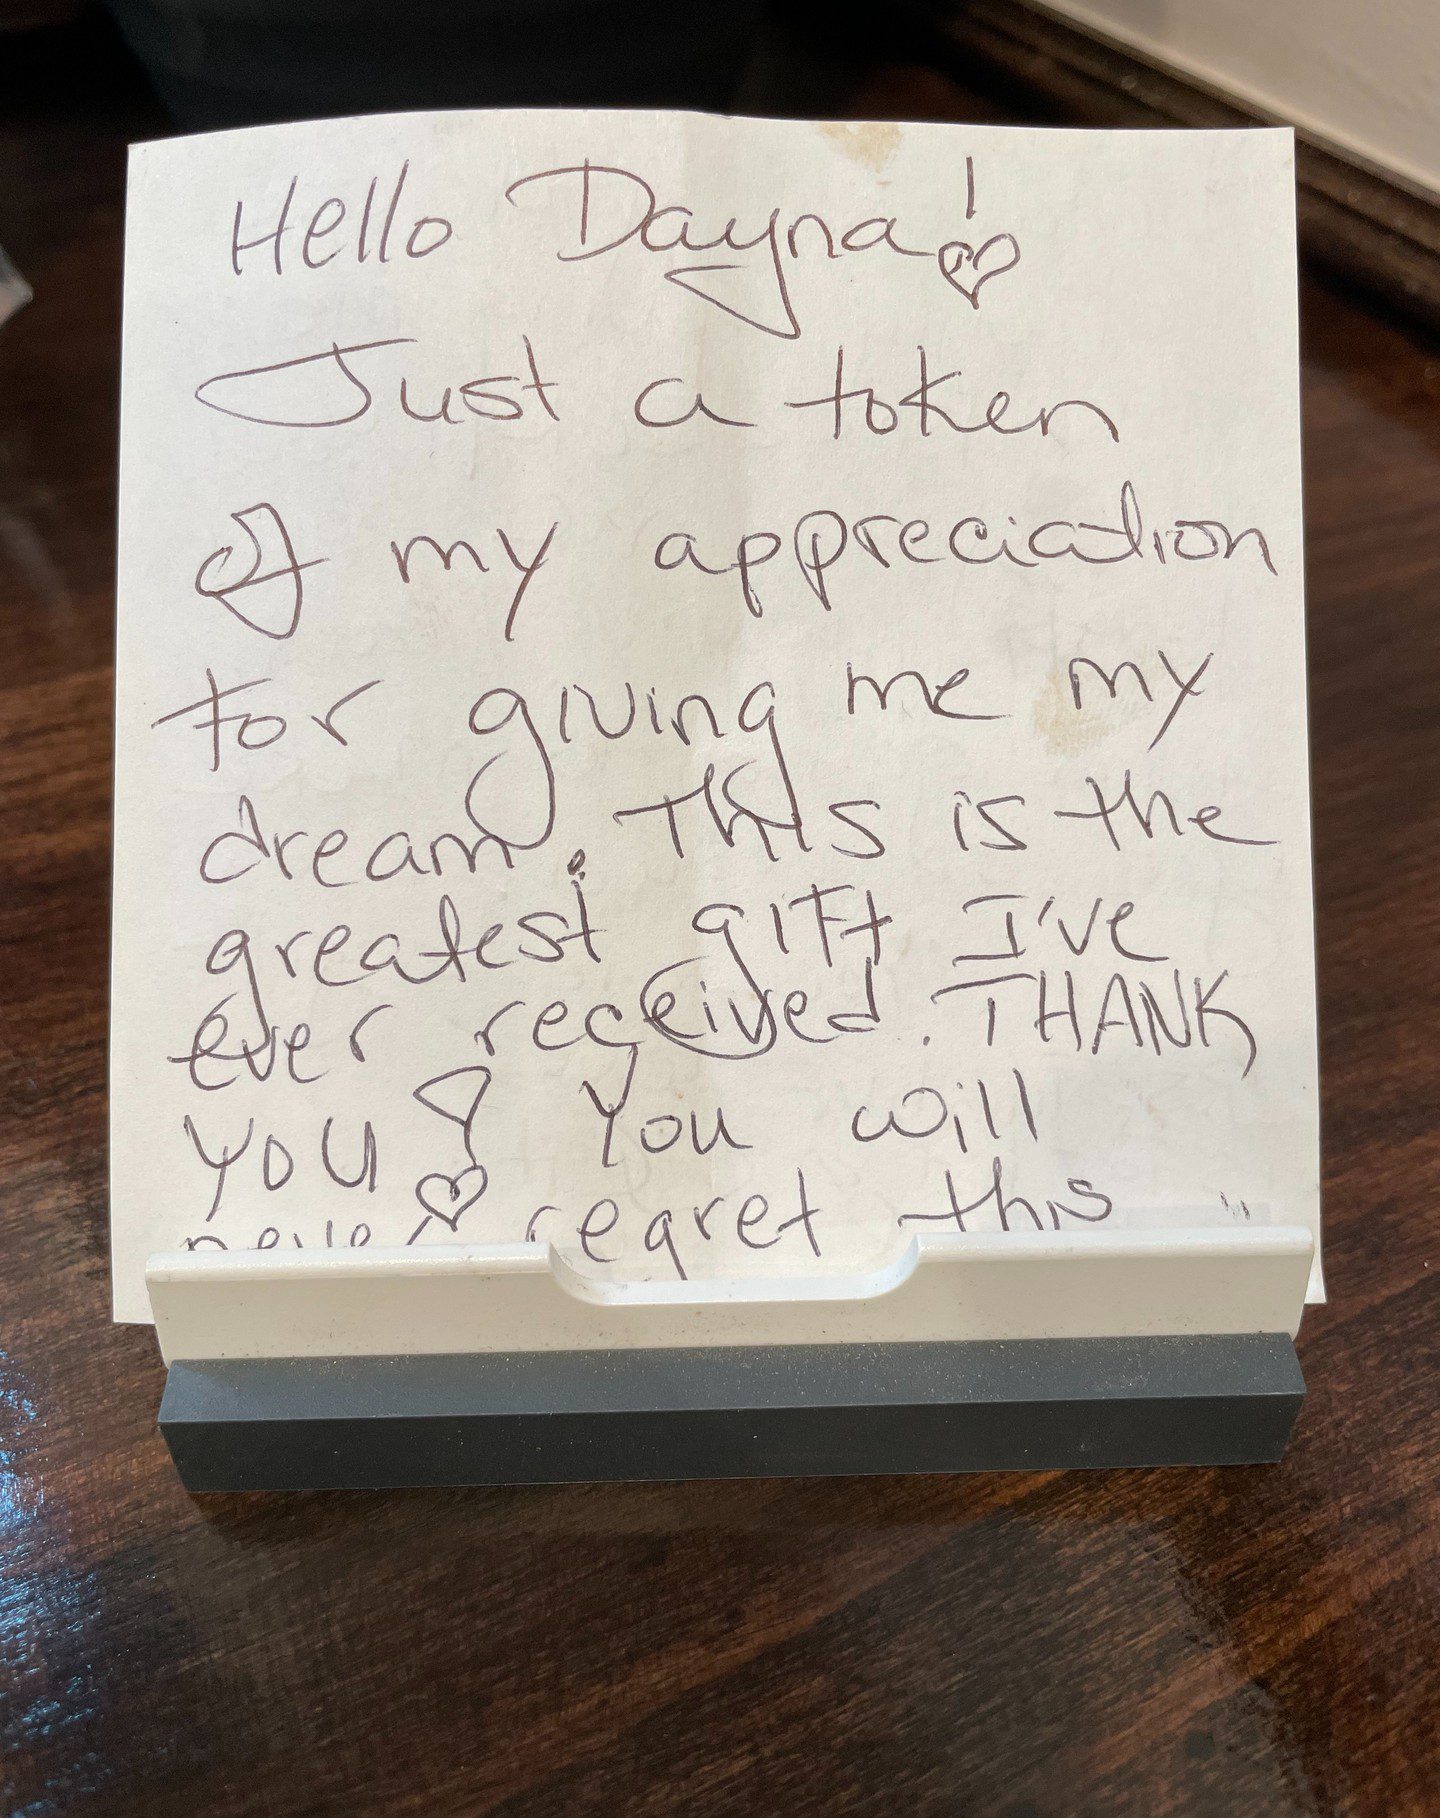 Hello Dayna!
Just a token
of my appreciation
For giving me my
dream. This is the
greatest gift I've
ever received. THANK
YOU! You will
never regret this